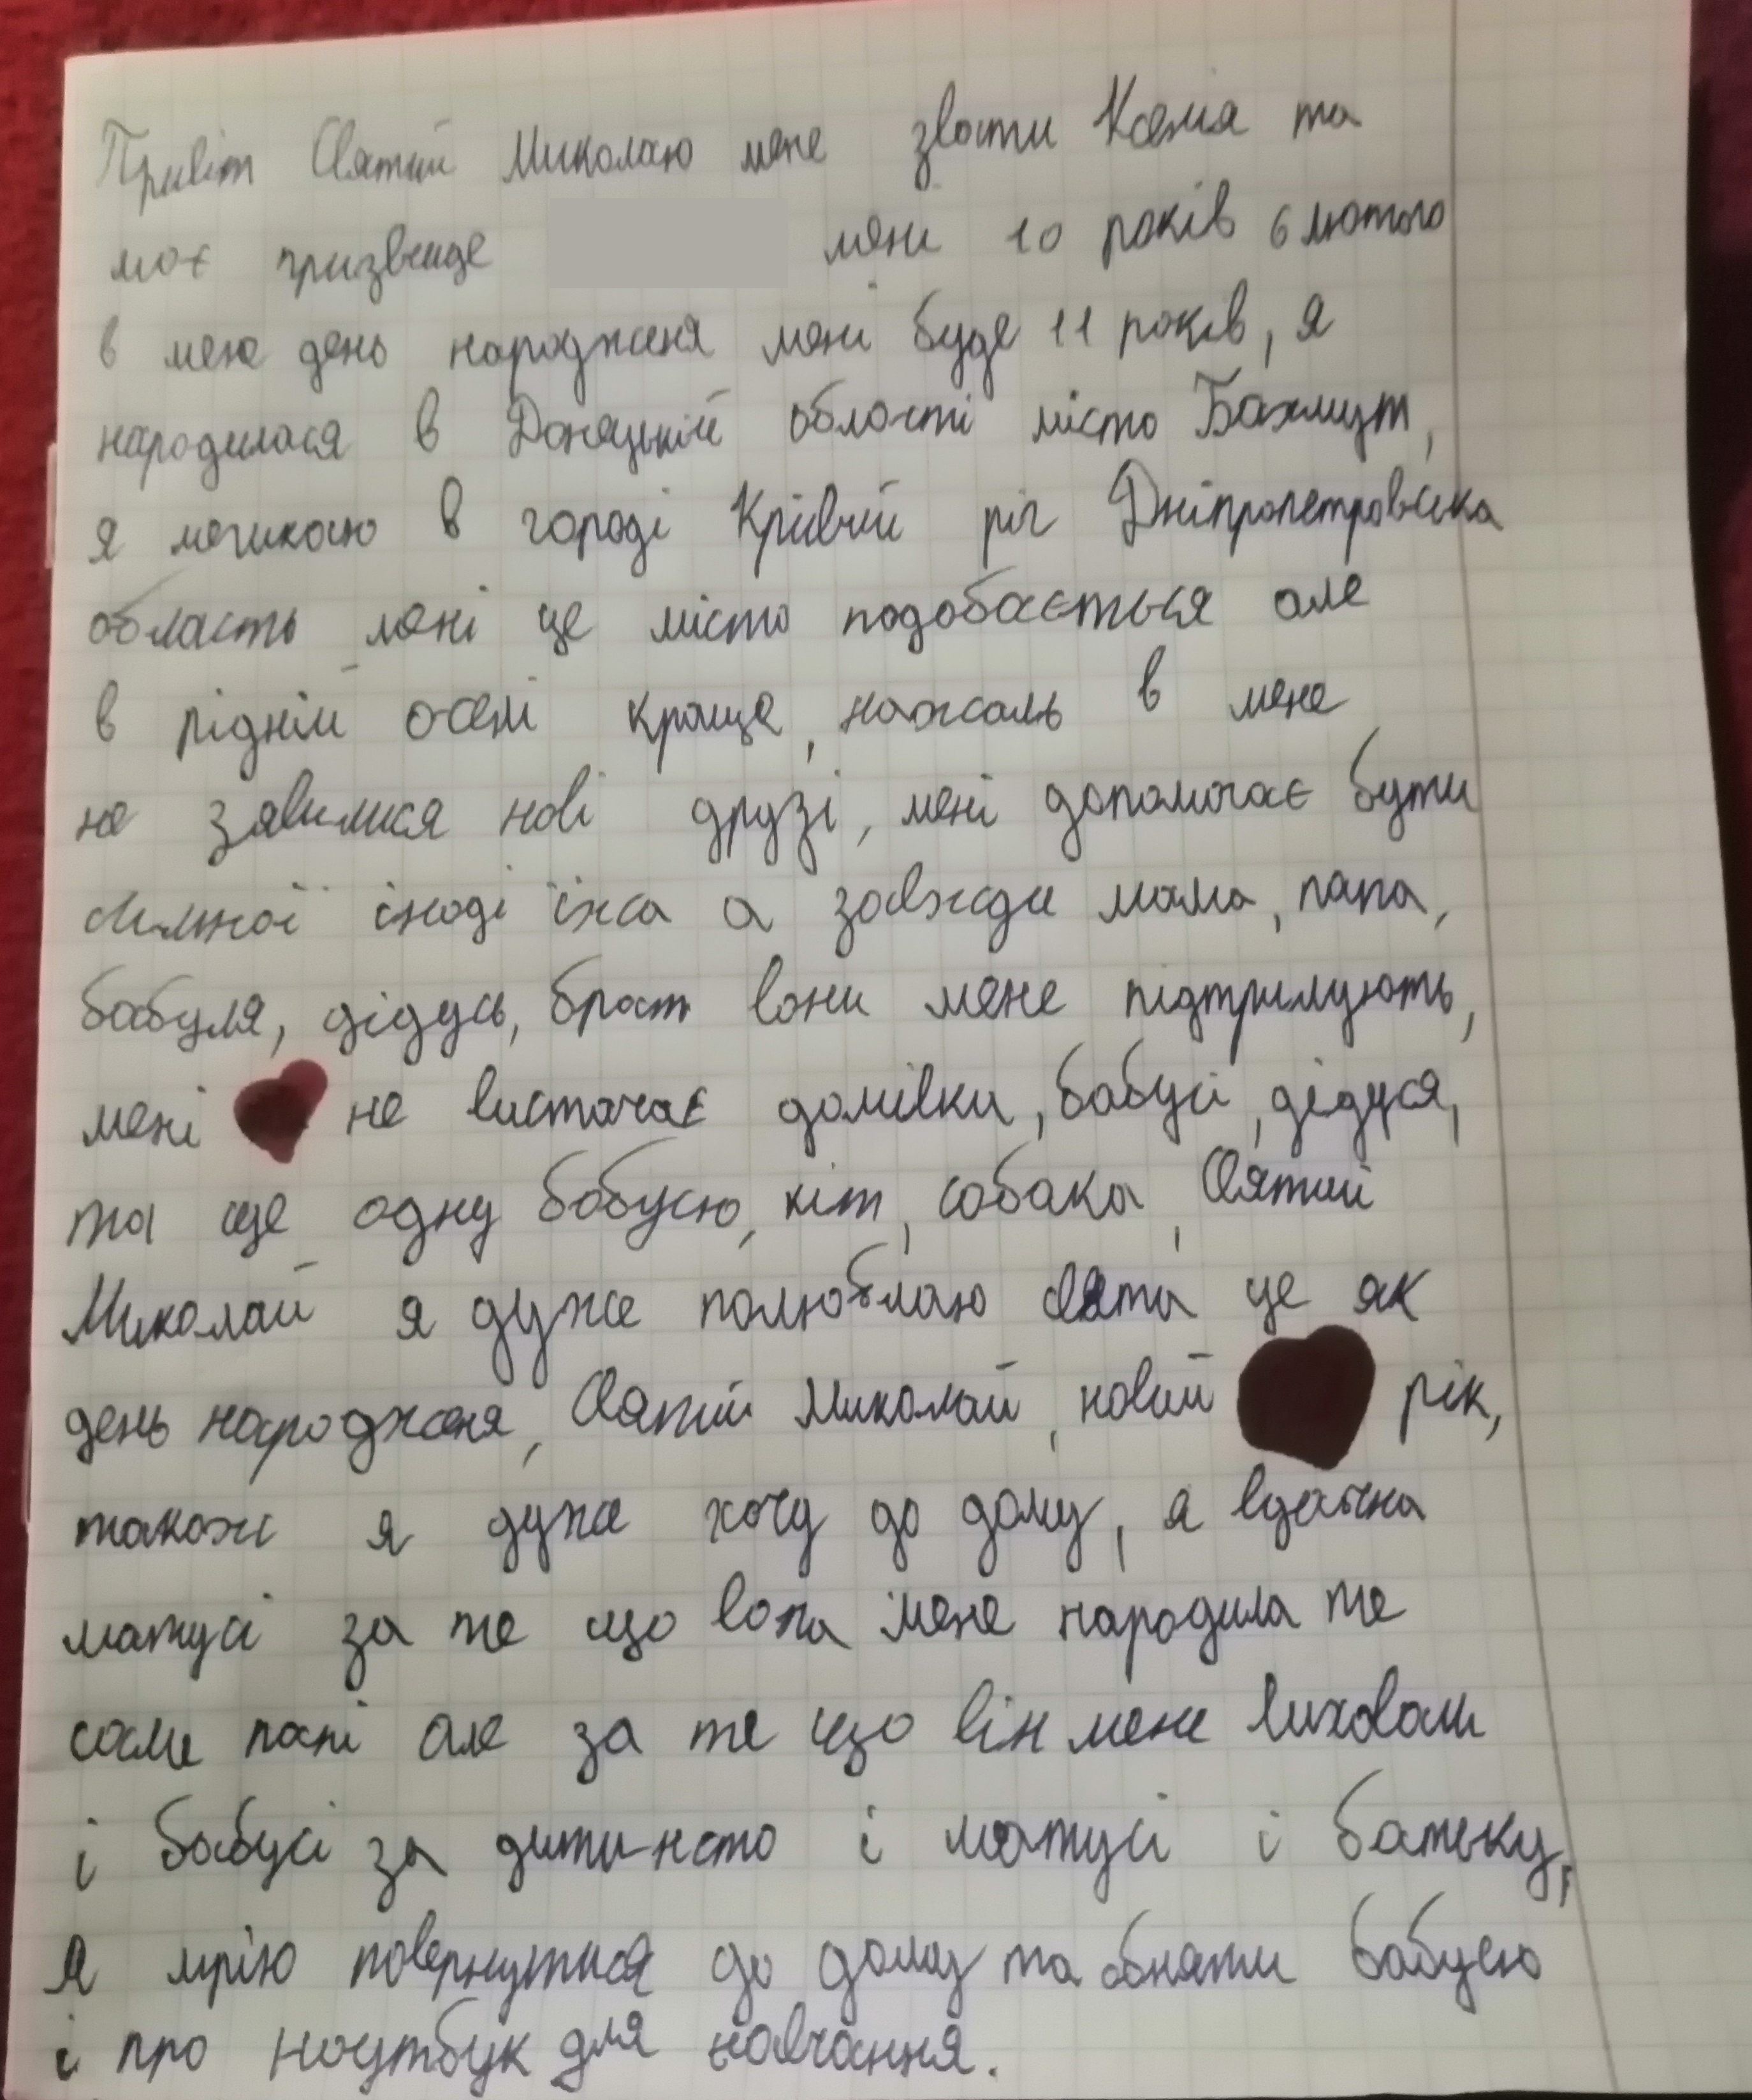 Привіт Святий Миколаю мене звати Ксенія та
моє призвище мені 10 років 6 лютого
в мене день народженя мені буде 11 років, я
народилася в Донецькій області місто Бахмут,
я мешкаю в городі Крівий ріг Дніпропетровська
область мені це місто подобається але
в рідній оселі краще, нажаль в мене
не зявилися нові друзі, мені допомогає бути
сильної іноді їжа а завжди мама, папа,
бабуля, дідусь, брат вони мене підтримують,
мені не вистачає домівки, бабусі, дідуся,
та ще одну бабусю, кіт, собака, Святий
Миколай я дуже полюбляю свята це як
день народженя, Святий Миколай, новий рік,
також я дуже хочу до дому, я вдячна
матусі за те що вона мене народила те
саме папі але за те що він мене виховали
і бабусі за дитинсто і матусі і батьку,
я мрію повернутися до дому та обняти бабусю
і про ноутбук для навчання.